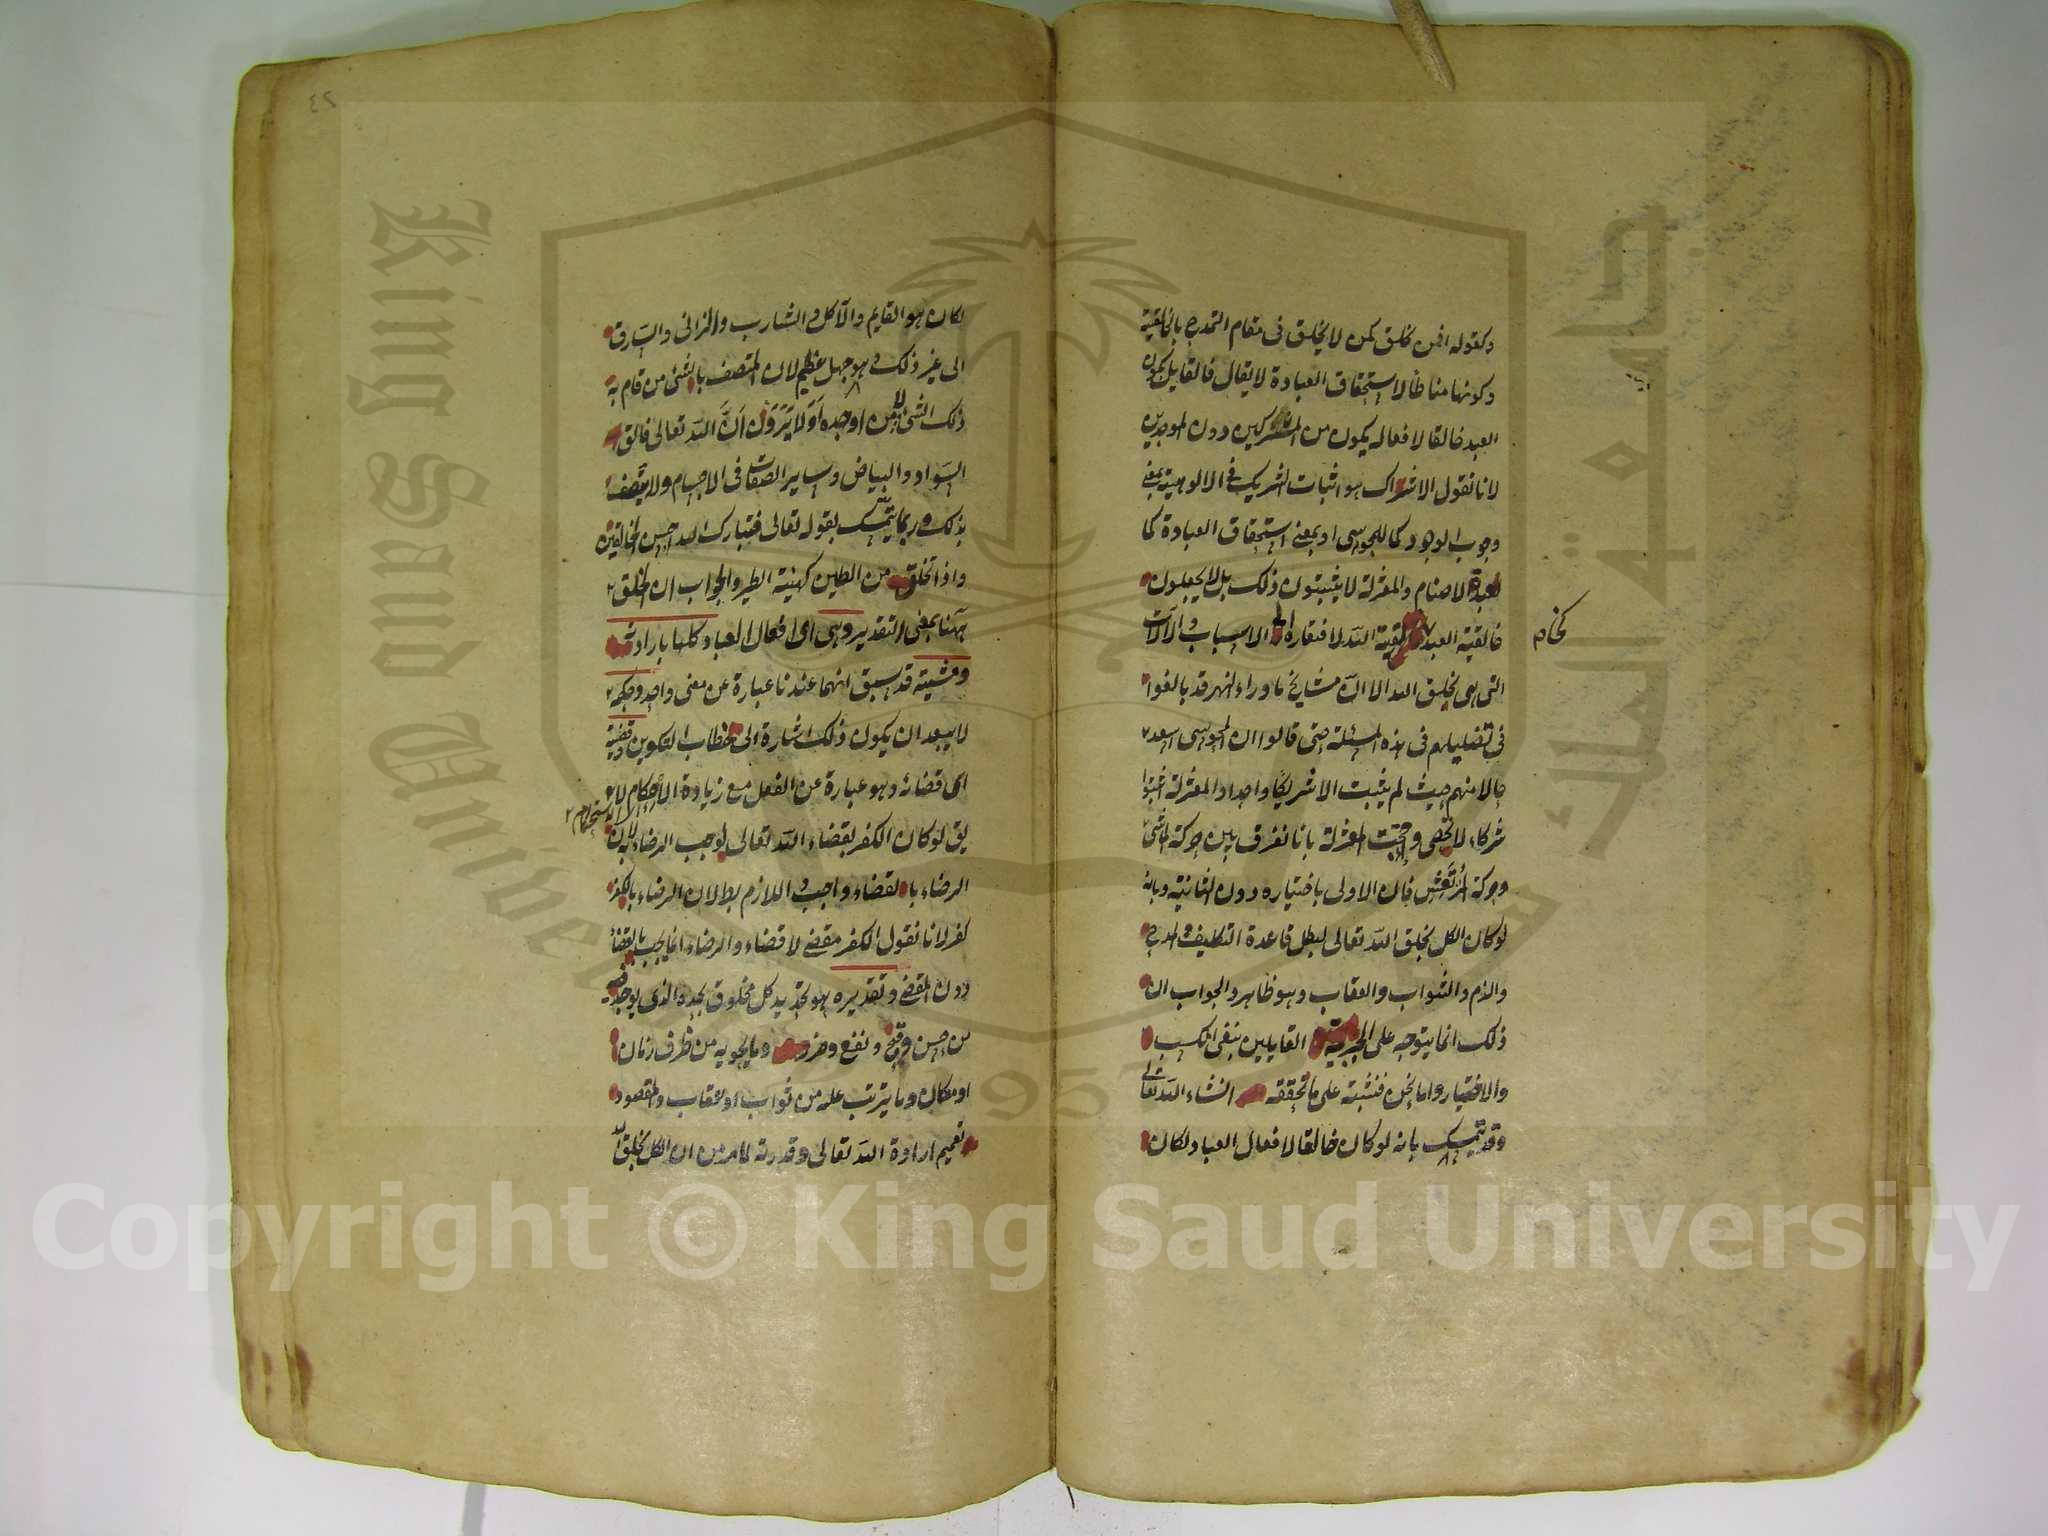 وكقوله افمن يخلق كمن لا يخلق فى مقام التمدح بالخالقية
وكونها مناطا لاستحقاق العبادة لا يقال فالقايل بكون
العبد خالقا لافعاله يكون من المشركين دون الموحدين
لانا نقول الاشراك هو اثبات الشريك فى الالوهية بمعنى
وجوب الوجود كما للمجوسى او بمعنى استحقاق العبادة كما
لعبدة الاصنام والمعتزلة لا يثبتون ذلك بل لا يجعلون
خالقية العبد كخالقية الله لافتقاره الى الاسباب والالات
التى هى بخلق الله الا ان مشايخ ماوراء النهر قد بالغوا
فى تضليلهم فى هذه المسئلة حتى قالوا ان المجوسى اسعد
حالا منهم حيث لم يثبت الا شريكا واحدا والمعتزلة اثبتوا
شركاء لا تحصى واحتجت المعتزلة بانا نفرق بين حركة الماشى
وحركة المرتعش فان الاولى باختياره دون الثانية وبانه
لو كان الكل بخلق الله تعالى لبطل قاعدة التكليف والمدح
والذم والثواب والعقاب وهو ظاهر والجواب ان
ذلك انما يتوجه على الجبرية القايلين بنفى الكسب
والاختيار واما نحن فنثبته على ما نحققه انشاء الله تعالى
وقد يتمسك بانه لو كان خالقا لافعال العباد لكان
لكان هو القايم والآكل والشارب والزانى والسارق
الى غير ذلك وهو جهل عظيم لان المتصف بالشئ من قام به
ذلك الشئ لا من اوجده اَوَلا يَرَوْنَ اَنَّ الله تعالى خالق
السواد والبياض وساير الصفات فى الاجسام ولا يتصف
بذلك وربما يتمسك بقوله تعالى فتبارك الله احسن الخالقين
واذ تخلق من الطين كهيئة الطير والجواب ان الخلق
ههنا بمعنى التقدير وهى اى افعال العباد كلها بارادته
ومشيته قد سبق انهما عندنا عبارة عن معنى واحد وحكمه
لا يبعد ان يكون ذلك اشارة الى خطاب التكوين وقضيته
اى قضائه وهو عبارة عن الفعل مع زيادة الاحكام لا
يق لو كان الكفر بقضاء الله تعالى لوجب الرضاء به لان
الرضاء بالقضاء واجب واللازم بط لان الرضاء بالكفر
كفر لانا نقول الكفر مقضى لا قضاء والرضاء انما يجب بالقضاء
دون المقضى وتقديره هو تحديد كل مخلوق بحده الذى يوجد
من حسن وقبح ونفع وضر وما يحويه من ظرف زمان
او مكان وما يترتب عليه من ثواب او عقاب والمقصود
تعميم ارادة الله تعالى وقدرته لما مر من ان الكل بخلق الله